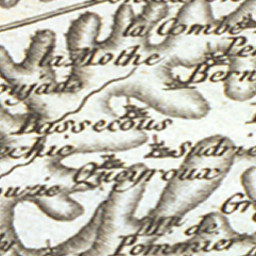 la Combe
la Mothe
Bern
oujade
Bassecous
echie
Sudrie
Queyroux
ouzie
Gr
Mⁿ. de
Pommier